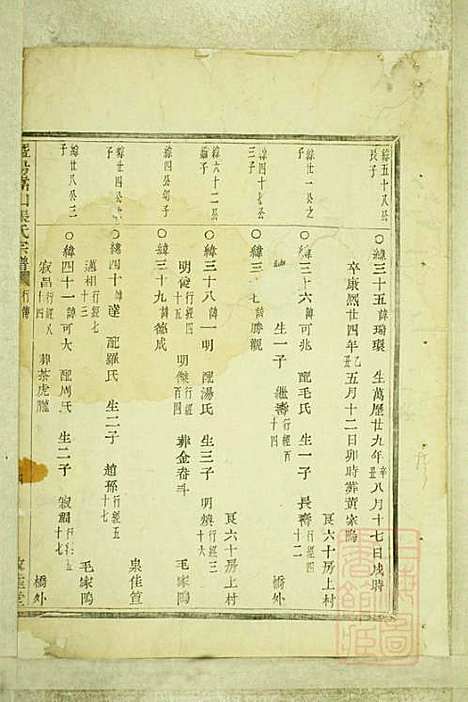 緯五十八公長子
○緯三十五諱瑞環 生萬歷廿九年辛丑八月十七日戌時
卒康熙廿四年乙丑五月十二日卯時葬黃家隖
艮六十房上村
緯廿一公之子
○緯三十六諱可兆 配毛氏 生一子 長壽行經百十二
橋外
緯四十七公子
○緯三 七諱勝觀
生一子 繼壽行經百十四
艮六十房上村
緯六十二公繼子
○緯三十八諱一明 配湯氏 生三子 明燒行經三十六
明從行經四十五 明傑行經四百四 葬金畚斗
毛家隖
緯四公幼子
○緯三十九諱德成
泉佳篁
緯廿四公子
○緯四十諱達 配羅氏 生二子 趙孫行經五十七
邁相行經七十三
毛家隖
緯廿八公三子
○緯四十一諱可大 配周氏 生二子 寂潤行經五十七
寂昌行經八十四 葬茶虎隴
橋外
張氏宗譜 行傳